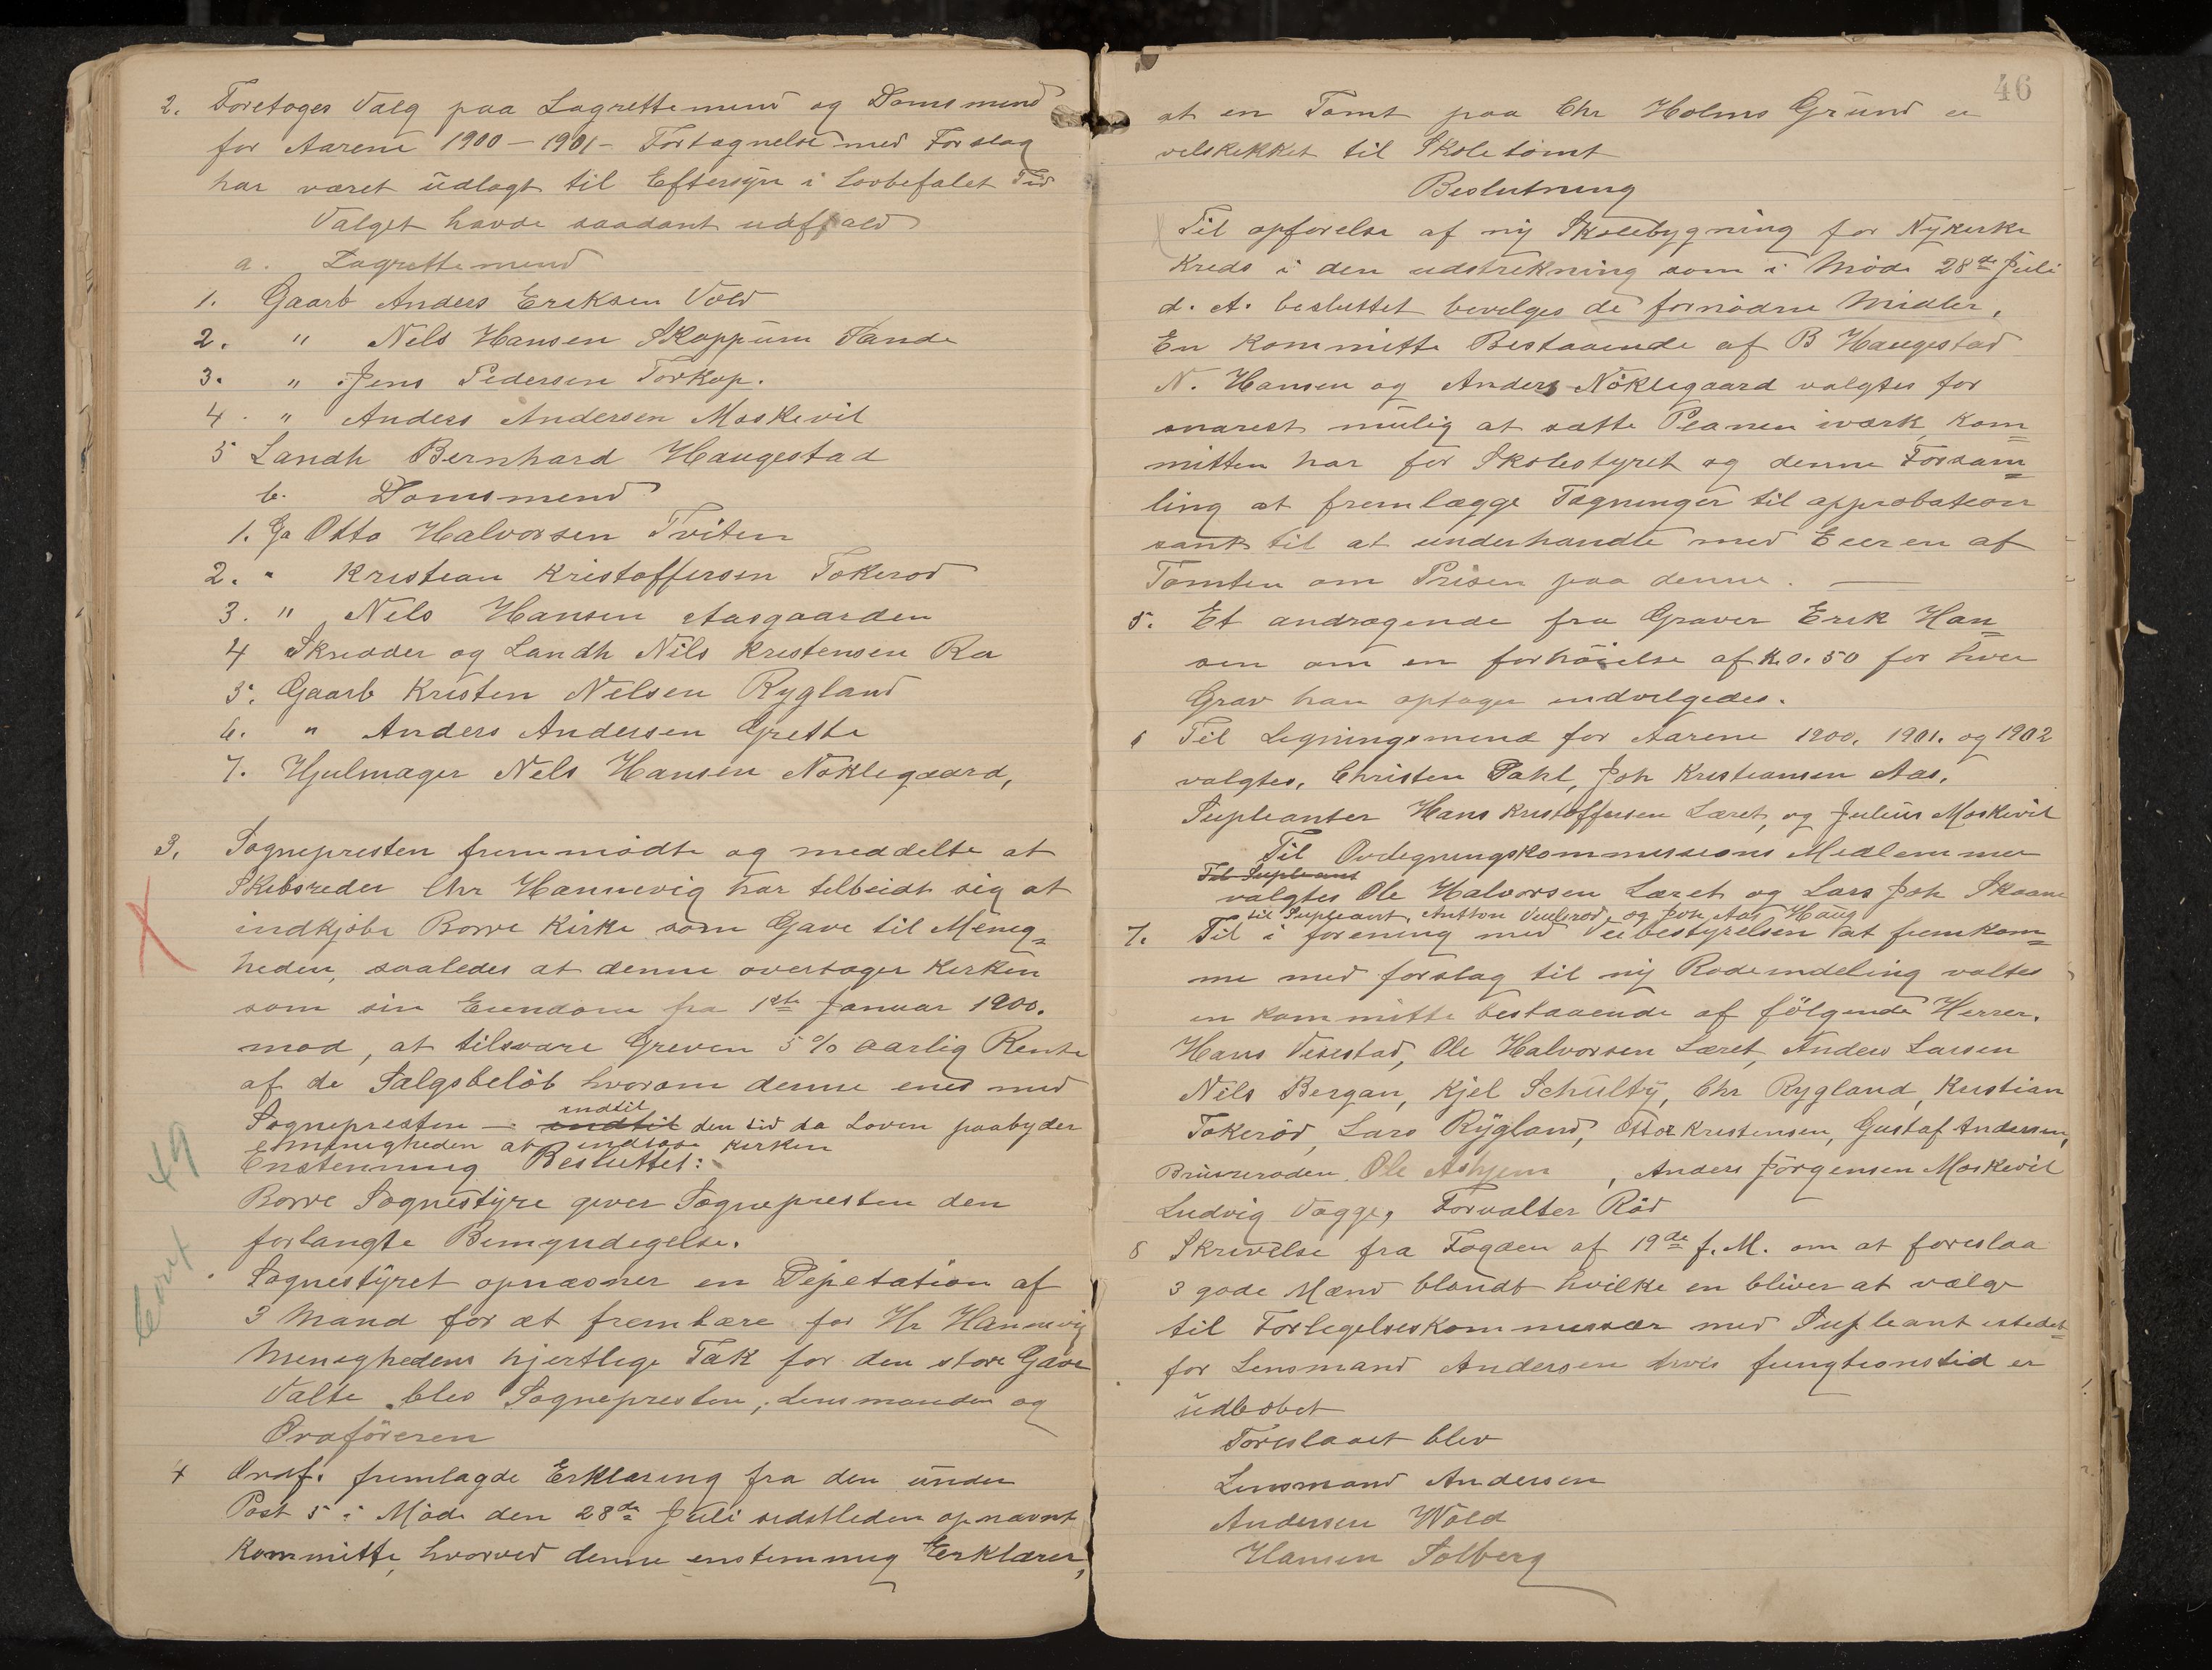 2. Foretoges Valg paa Lagrettemend og Domsmend
for Aarene 1900 – 1901 – Fortegnelse med Forslag
har været udlagt til Eftersyn i lovbefalet Tid
Valget havde saadant udfald
a. Lagrettemend
1. Gaarb Anders Eriksen Vold
2. " Nels Hansen Skoppum Sande
3. " Jens Pedersen Torkop.
4. " Anders Andersen Moskevil
5 Landh Bernhard Haugestad
b. Domsmend
1. Ga Otto Halvorsen Tviten
2. " Kristian Kristoffersen Tokerod
3. " Nels Hansen Aasgaarden
4 Skredder og Landh Nils Kristensen Ra
5. Gaarb Kristen Nelsen Rygland
6. " Anders Andersen Grette
7. Hjulmager Nels Hansen Nøklegaard,
3. Sognepresten fremmødte og meddelte at
Skibsreder Chr Hannevig har tilbeidt sig at
indkjøbe Borre Kirke som Gave til Menig=
heden, saaledes at denne overtager Kirken
som sin Eiendom fra 1ste Januar 1900.
mod, at tilsvare Greven 5 % aarlig Rente
af de Salgsbeløb hvorom denne enes med
Sognepresten – indtil den tid da Loven paabyder
menigheden at indløse Kirken
Enstemmig Besluttet:
Borre Sognestyre giver Sognepresten den
forlangte Bemyndigelse.
Sognestyret opnævner en Depetation af
3 Mand for at frembære for Hr Hannevig
Menighedens hjertlige Tak for den store Gave
Valte blev Sognepresten, Lensmanden og
Ordføreren
4 Ordf. fremlagde Erklæring fra den under
Post 5 i Møde den 28de Juli sidstleden opnævnt
Kommitte, hvorved denne enstemmig Erklærer,
Cort 49
46
at en Tomt paa Chr Holms Grund er
velskikket til Skoletomt
Beslutning
Til opførelse af ny Skolebygning for Nykirke
Kreds i den udstrekning som i Møde 28de Juli
d. A. besluttet bevilges de fornødne Midler.
En Kommitte Bestaaende af B Haugestad
N. Hansen og Anders Nøklegaard valgtes for
snarest mulig at sætte Planen iværk, Kom=
mitten har for Skolestyret og denne Forsam=
ling at fremlægge Tegninger til approbation
samt til at underhandle med Eeeren af
Tomten om Prisen paa denne. —
5. Et andragende fra Graver Erik Han=
sen om en forhøielse af K 0.50 for hver
Grav han optager indvilgedes.
6 Til Ligningsmend for Aarene 1900. 1901. og 1902
valgtes, Christen Dahl, Joh Kristiansen Aas.
Supleanter Hans Kristoffersen Læret, og Julius Moskevil
Til Overlegningskommissions Medlemmer
Til Supleant
valgtes Ole Halvorsen Læret og Lars Joh Skaane
til Supleant, Anthon Viulsrod, og Joh Aas Haug
7. Til i forening med Veibestyrelsen at fremkom=
me med forslag til ny Rodeindeling valtes
en Kommitte bestaaende af følgende Herrer.
Hans Vesestad, Ole Halvorsen Læret, Anders Larsen
Nils Bergan, Kjel Schulty, Chr Rygland, Kristian
Tokerød, Lars Rygland, Otto Kristensen, Gustaf Andersen,
Bruseroden, Ole Askjem, Anders Jörgensen Moskevil
Ludvig Vagge, Forvalter Röd
8 Skrivelse fra Fogden af 19de f. M. om at foreslaa
3 gode Mænd blandt hvilke en bliver at vælge
til Forligelseskommissær med Supleant istedet=
for Lensmand Andersen hvis fungtionstid er
udløbet
Foreslaaet blev
Lensmand Andersen
Andersen Wold
Hansen Solberg